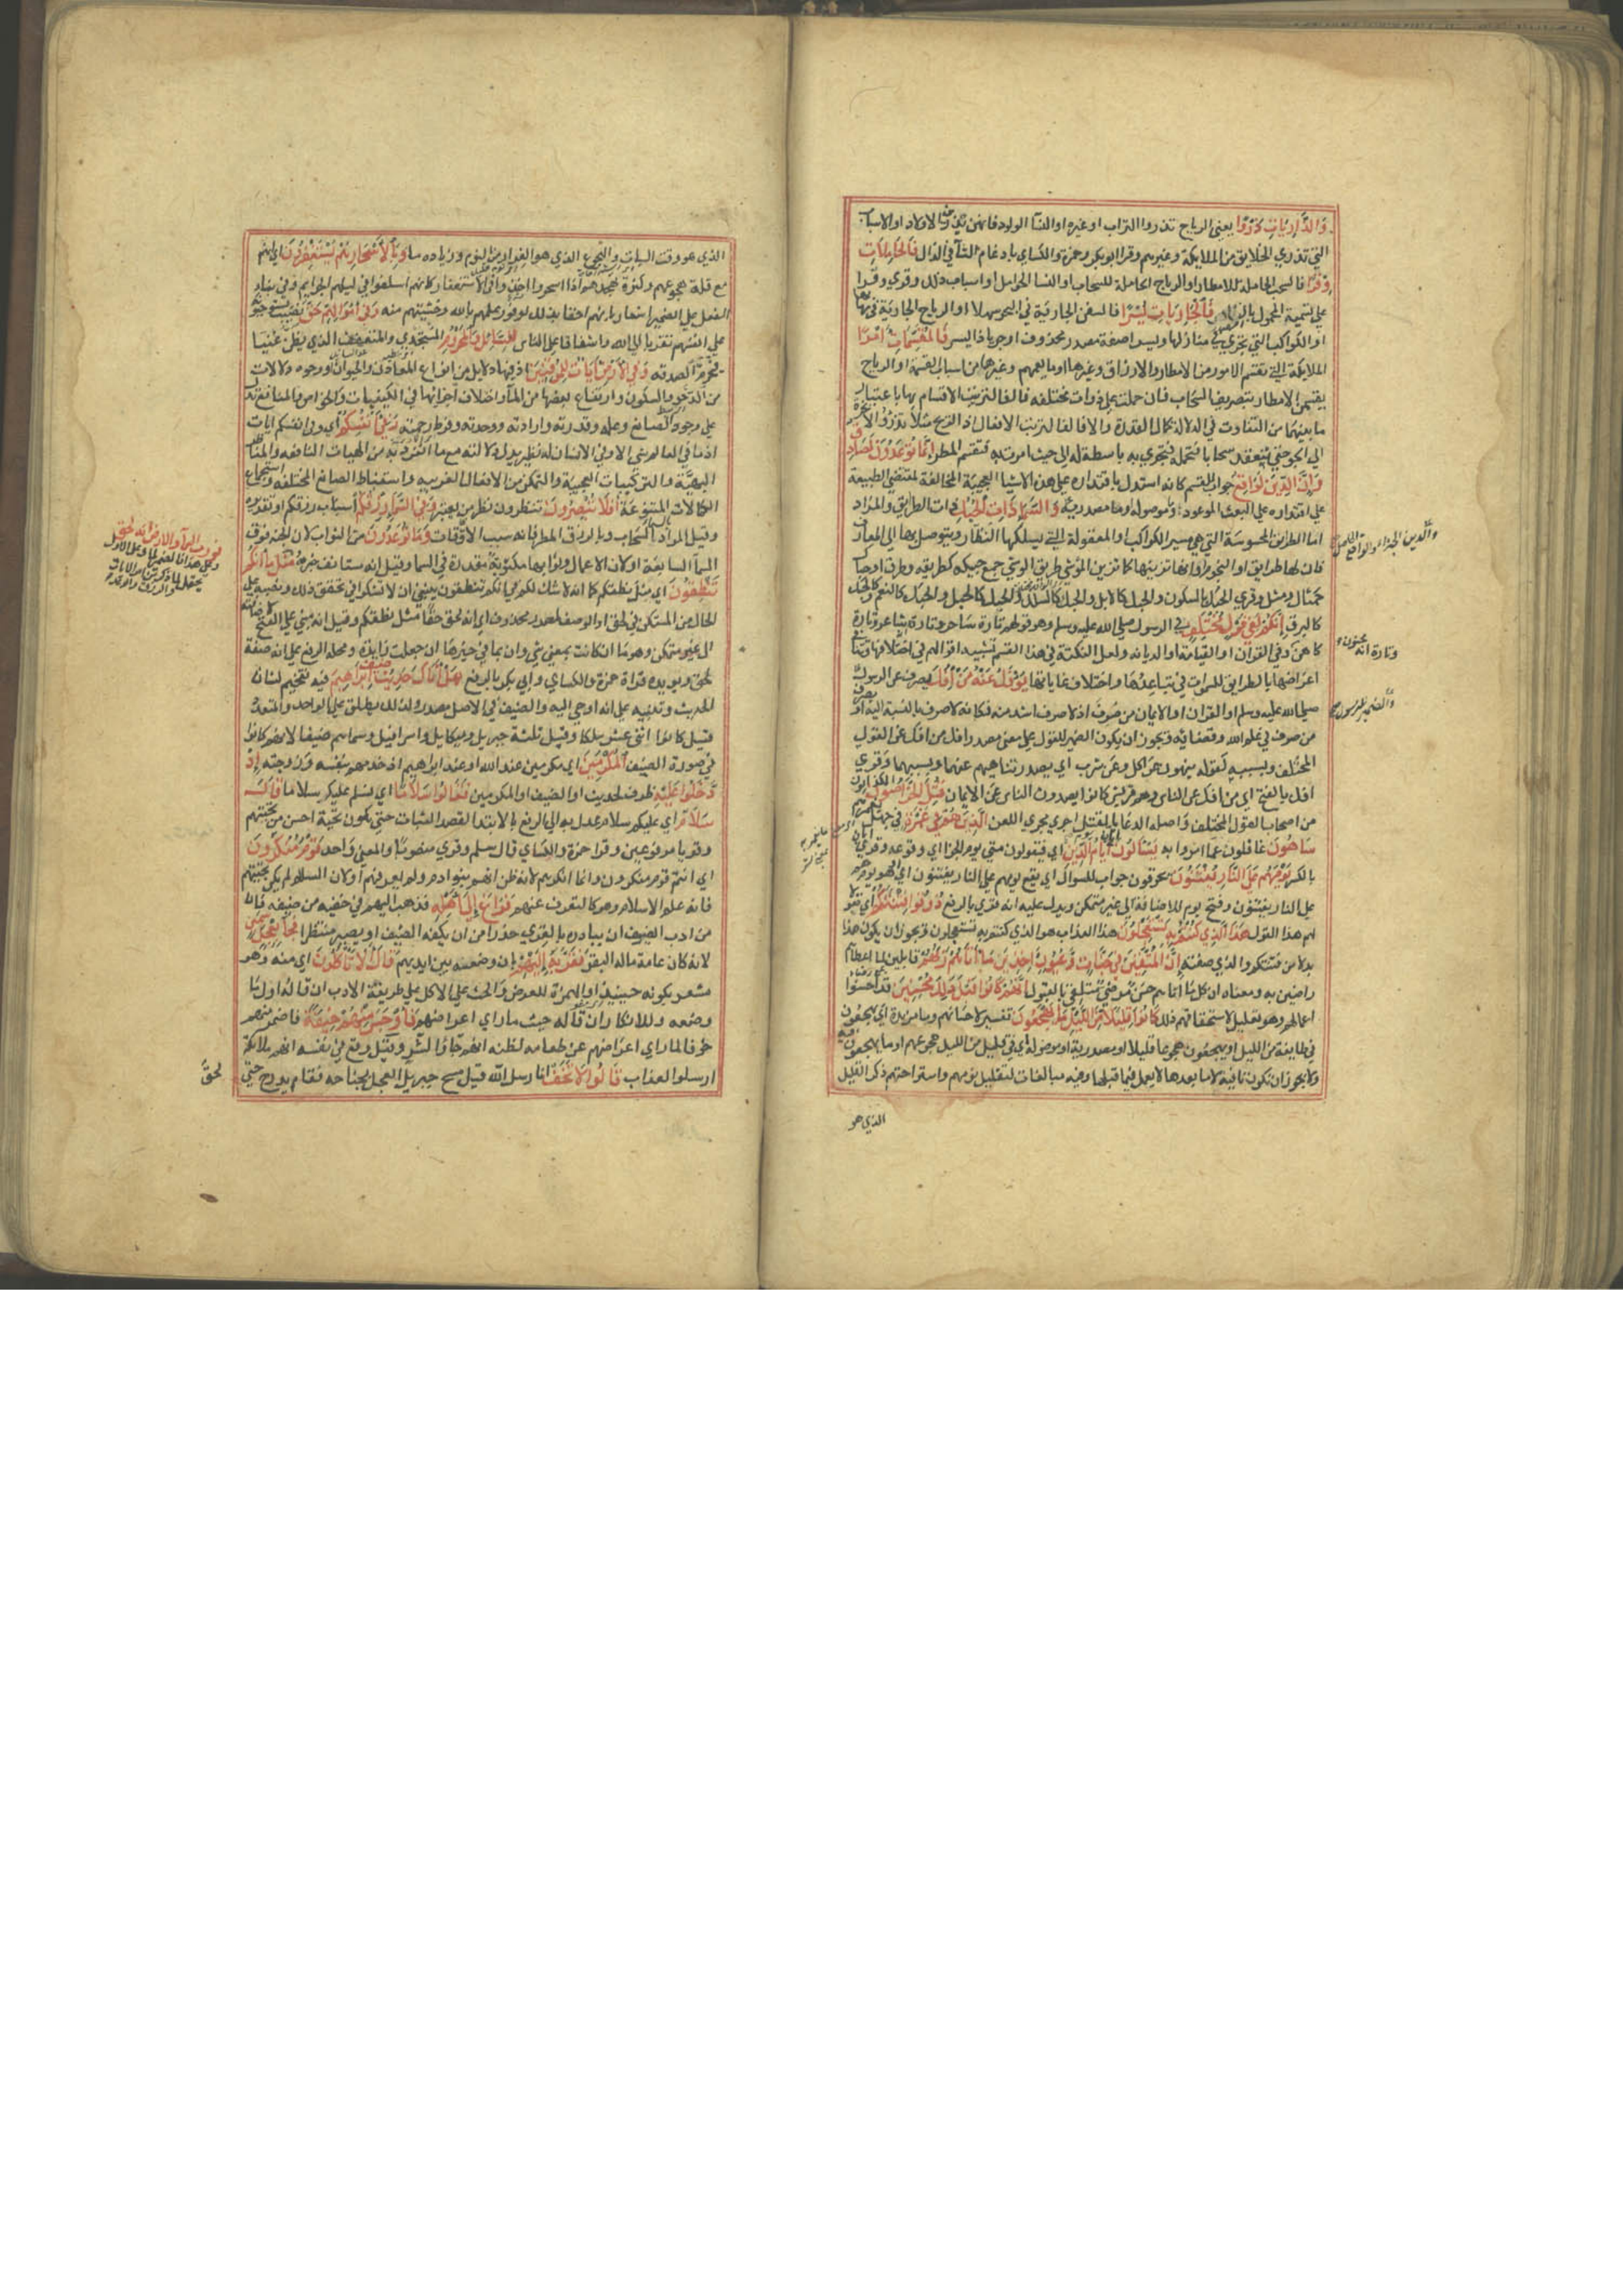 وَالذَّارِيَاتِ ذَرْوًا يعني الرياح تذروا التراب او غيره او النسا الولود فانهن يذرين الاولاد او الاسباب
التي تذري الخلايق من الملايكة وغيرهم وقرا ابو بكر وحمزة والكساي بادغام التآ في الذال فَالْحَامِلَاتِ
وِقْرًا فالسحب الحاملة للامطار او الرياح الحاملة للسحاب او النسا الحوامل او اسباب ذلك وقري وقرا
علي تسمية المحمول بالمصدر فَالْجَارِيَاتِ يُسْرًا فالسفن الجارية في البحر سهلا او الرياح الجارية في مهابها
او الكواكب التي تجري في منازلها ويسرا صفة مصدر محذوف اي جريا ذا يسر فَالْمُقَسِّمَاتِ أَمْرًا
الملايكة التي تقسم الامور من الامطار والارزاق وغيرها او ما يعمهم وغيرها من اسباب القسمة او الرياح
يقسمن الامطار بتصريف السحاب فان حملت علي ذوات مختلفه فالفا لترتيب الاقسام بها باعتبار
ما بينهما من التفاوت في الدلالة علي كمال القدرة والا فالفا لترتيب الافعال اذ الريح مثلا تذروا الابخرة
الي الجو حتي ينعقد سحابا فتحمله فتجري به باسطة له الي حيث امرت به فتقسم المطر إِنَّمَا تُوعَدُونَ لَصَادِقٌ
وَإِنَّ الدِّينَ لَوَاقِعٌ جواب للقسم كانه استدل باقتداره علي هذه الاشيا العجيبة المخالفة لمقتضي الطبيعة
علي اقتداره علي البعث الموعود وما موصولة او مصدرية وَالسَّمَاءِ ذَاتِ الْحُبُكِ ذات الطرايق والمراد
اما الطرايق المحسوسة التي هي مسير الكواكب او المعقولة التي يسلكها النظار ويتوصل بها الي المعارف
والدين الجزاء والواقع الحاصل
فان لها طرايق او النجوم او انها تزينها كما تزين الموشي طرايق الوشي جمع حبيكه كطريقه وطرق او حباك
كمثال ومثل وقري الحبك بالسكون والحبك كالابل والحبك كالسلك والحبك كالجبل والحبك كالنعم والحبك
كالبرق إِنَّكُمْ لَفِي قَوْلٍ مُخْتَلِفٍ في الرسول صلي الله عليه وسلم وهو قولهم تارة ساحر وتارة شاعر وتارة
وتارة انه مجنون
كاهن وفي القران او القيامة او الديانه ولعل النكتة في هذا القسم تشبيه اقوالهم في اختلافها وتنافي
اعراضها بالطرايق للسموات في تباعدها واختلاف غاياتها يُؤْفَكُ عَنْهُ مَنْ أُفِكَ يصرف عن الرسول
والضمير للرسول
صلي الله عليه وسلم او القران او الايمان من صرف اذ لا صرف اشد منه فكانه لا صرف بالنسبة اليه او يصرف
من صرف في علم الله وقضائه ويجوز ان يكون الضمير للقول علي معني يصدر افك من افك عن القول
المختلف وبسببه كقوله ينهون عن اكل وعن شرب اي يصدر تناهيهم عنهما وبسببهما وقري
افك بالفتح اي من افك عن الناس وهم قريش كانوا يصدون الناس عن الايمان قُتِلَ الْخَرَّاصُونَ الكذابون
من اصحاب القول المختلف واصله الدعا بالقتل اجري مجري اللعن الَّذِينَ هُمْ فِي غَمْرَةٍ في جهل يغمرهم
سَاهُونَ غافلون عما امروا به يَسْأَلُونَ أَيَّانَ يَوْمُ الدِّينِ اي فيقولون متي يوم الجزا اي وقوعه وقري ايان
بالكسر يَوْمَ هُمْ عَلَى النَّارِ يُفْتَنُونَ يحرقون جواب للسوال اي يقع يوم هم علي النار يفتنون او هو يوم هم
علي النار يفتنون وفتح يوم للاضافة الي غير متمكن ويدل عليه انه قري بالرفع ذُوقُوا فِتْنَتَكُمْ اي مقولا
لهم هذا القول هَذَا الَّذِي كُنْتُمْ بِهِ تَسْتَعْجِلُونَ هذا العذاب هو الذي كنتم به تستعجلون ويجوز ان يكون هذا
بدلا من فتنتكم والذي صفته إِنَّ الْمُتَّقِينَ فِي جَنَّاتٍ وَعُيُونٍ آخِذِينَ مَا آتَاهُمْ رَبُّهُمْ قابلين لما اعطاهم
راضين به ومعناه ان كل ما اتاهم حسن مرضي متلقي بالقبول إِنَّهُمْ كَانُوا قَبْلَ ذَلِكَ مُحْسِنِينَ قد احسنوا
اعمالهم وهو تعليل لاستحقاقهم ذلك كَانُوا قَلِيلًا مِنَ اللَّيْلِ مَا يَهْجَعُونَ تفسير لاحسانهم وما مزيدة اي يهجعون
في طايفة من الليل او يهجعون هجوعا قليلا او مصدرية او موصولة اي في قليل من الليل هجوعهم او ما يهجعون فيه
ولا يجوز ان تكون نافية لان ما بعدها لا يعمل فيما قبلها وفيه مبالغات لتقليل نومهم واستراحتهم ذكر القليل
الذي هو
الذي هو وقت السبات والهجوع الذي هو الغرار من النوم وزيادة ما وَبِالْأَسْحَارِ هُمْ يَسْتَغْفِرُونَ اي انهم
مع قلة هجوعهم وكثرة تهجدهم اذا اسحروا اخذوا في الاستغفار كانهم اسلفوا في ليلهم الجرايم وفي بناء
الفعل علي الضمير اشعار بانهم احقا بذلك لوفور علمهم بالله وخشيتهم منه وَفِي أَمْوَالِهِمْ حَقٌّ نصيب يستوجبونه
علي انفسهم تقربا الي الله واشفاقا علي الناس لِلسَّائِلِ وَالْمَحْرُومِ المستجدي والمتعفف الذي يظن غنيا
فيحرم الصدقه وَفِي الْأَرْضِ آيَاتٌ لِلْمُوقِنِينَ اذ فيها دلايل من انواع المعادن والحيوان او وجوه دلالات
من الدحو والسكون وارتفاع بعضها من المآ واختلاف اجزائها في الكيفيات والخواص والمنافع تدل
علي وجود الصانع وعلمه وقدرته وارادته ووحدته وفرط رحمته وَفِي أَنْفُسِكُمْ اي وفي انفسكم ايات
اذ ما في العالم شي الا وفي الانسان له نظير يدل دلالته مع ما انفرد به من الهيات النافعه والمناظر
البهية والتركيبات العجيبة والتمكن من الافعال الغريبه واستنباط الصنايع المختلفه واستجماع
الكمالات المتنوعة أَفَلَا تُبْصِرُونَ تنظرون نظر من يعتبر وَفِي السَّمَاءِ رِزْقُكُمْ اسباب رزقكم او تقديره
وقيل المراد السحاب وبالرزق المطر فانه سبب الاقوات وَمَا تُوعَدُونَ من الثواب لان الجنة فوق
السمآ السابعة او لان الاعمال وثوابها مكتوبة مقدرة في السما وقيل انه مستانف خبره مِثْلَ مَا أَنَّكُمْ
فورب السمآ والارض انه لحق
وعلي هذا فالضمير لما وعلي الاول
يحتمل ان يكون له ولما ذكر من امر الايات
والرزق والوعد
تَنْطِقُونَ اي مثل نطقكم كما انه لا شك لكم في انكم تنطقون ينبغي ان لا تشكوا في تحقق ذلك ونصبه علي
الحال من المستكن في لحق او الوصف لمصدر محذوف اي انه لحق حقا مثل نطقكم وقيل انه مبني علي الفتح لاضافته
الي غير متمكن وهو ما ان كانت بمعني شي وان بما في حيزها ان جعلت زايدة ومحله الرفع علي انه صفة
لحق ويويده قراة حمزة والكساي وابي بكر بالرفع هَلْ أَتَاكَ حَدِيثُ ضَيْفِ إِبْرَاهِيمَ فيه تفخيم لشان
الحديث وتنبيه علي انه اوحي اليه والضيف في الاصل مصدر ولذلك يطلق علي الواحد والمتعدد
قيل كانوا اثني عشر ملكا وقيل ثلثة جبريل وميكايل واسرافيل وسماهم ضيفا لانهم كانوا
في صورة الضيف الْمُكْرَمِينَ اي مكرمين عند الله او عند ابراهيم اذ خدمهم بنفسه وزوجته إِذْ
دَخَلُوا عَلَيْهِ ظرف لحديث او الضيف او المكرمين فَقَالُوا سَلَامًا اي نسلم عليكم سلاما قَالَ
سَلَامٌ اي عليكم سلام عدل به الي الرفع بالابتدا لقصد الثبات حتي تكون تحية احسن من تحيتهم
وقريا مرفوعين وقرا حمزة والكساي قال سلم وقري منصوبا والمعني واحد قَوْمٌ مُنْكَرُونَ
اي انتم قوم منكرون وانما انكرهم لانه ظن انهم بنوا ادم ولم يعرفهم او لان السلام لم يكن تحيتهم
فانه علم الاسلام وهو كالتعرف عنهم فَرَاغَ إِلَى أَهْلِهِ فذهب اليهم في خفيه من ضيفه فان
من ادب المضيف ان يبادره بالقري حذرا من ان يكفه الضيف او يصير منتظرا فَجَاءَ بِعِجْلٍ سَمِينٍ
لانه كان عامة ماله البقر فَقَرَّبَهُ إِلَيْهِمْ بان وضعه بين ايديهم قَالَ أَلَا تَأْكُلُونَ اي منه وهو
مشعر بكونه حنيذا والهمزة للعرض والحث علي الاكل علي طريقة الادب ان قاله اول ما
وضعه وللانكار ان قاله حيث ما راي اعراضهم فَأَوْجَسَ مِنْهُمْ خِيفَةً فاضمر منهم
خوفا لما راي اعراضهم عن طعامه لظنه انهم جاوا لشر وقيل وقع في نفسه انهم ملائكة
ارسلوا للعذاب قَالُوا لَا تَخَفْ انا رسل الله قيل مسح جبريل العجل بجناحه فقام يدرج حتي
لحق